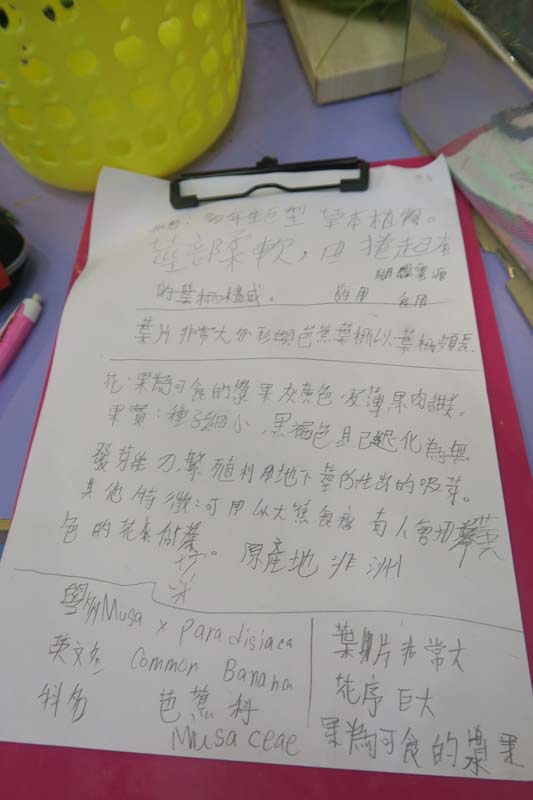 多年生巨型 草本植物。
莖部柔軟，由 捲起來
蝴蝶蜜源
的葉柄構成。 藥用 食用
葉片非常大 外形與芭蕉葉柄似 葉柄頗長
花：果為可食的漿果灰黃色，皮薄，果肉甜美。
果實：種子細小，黑褐色且已退化為無
發芽能力，繁殖利用地下莖的生出的吸芽。
其他特徵：可用以大 食 有人會用
色的花來做菜。 原產地 非洲
學名Musa x paradisiaca
英文名 Common Banana
科名 芭蕉科
Musaceae
葉片非常大
花序巨大
果為可食的漿果